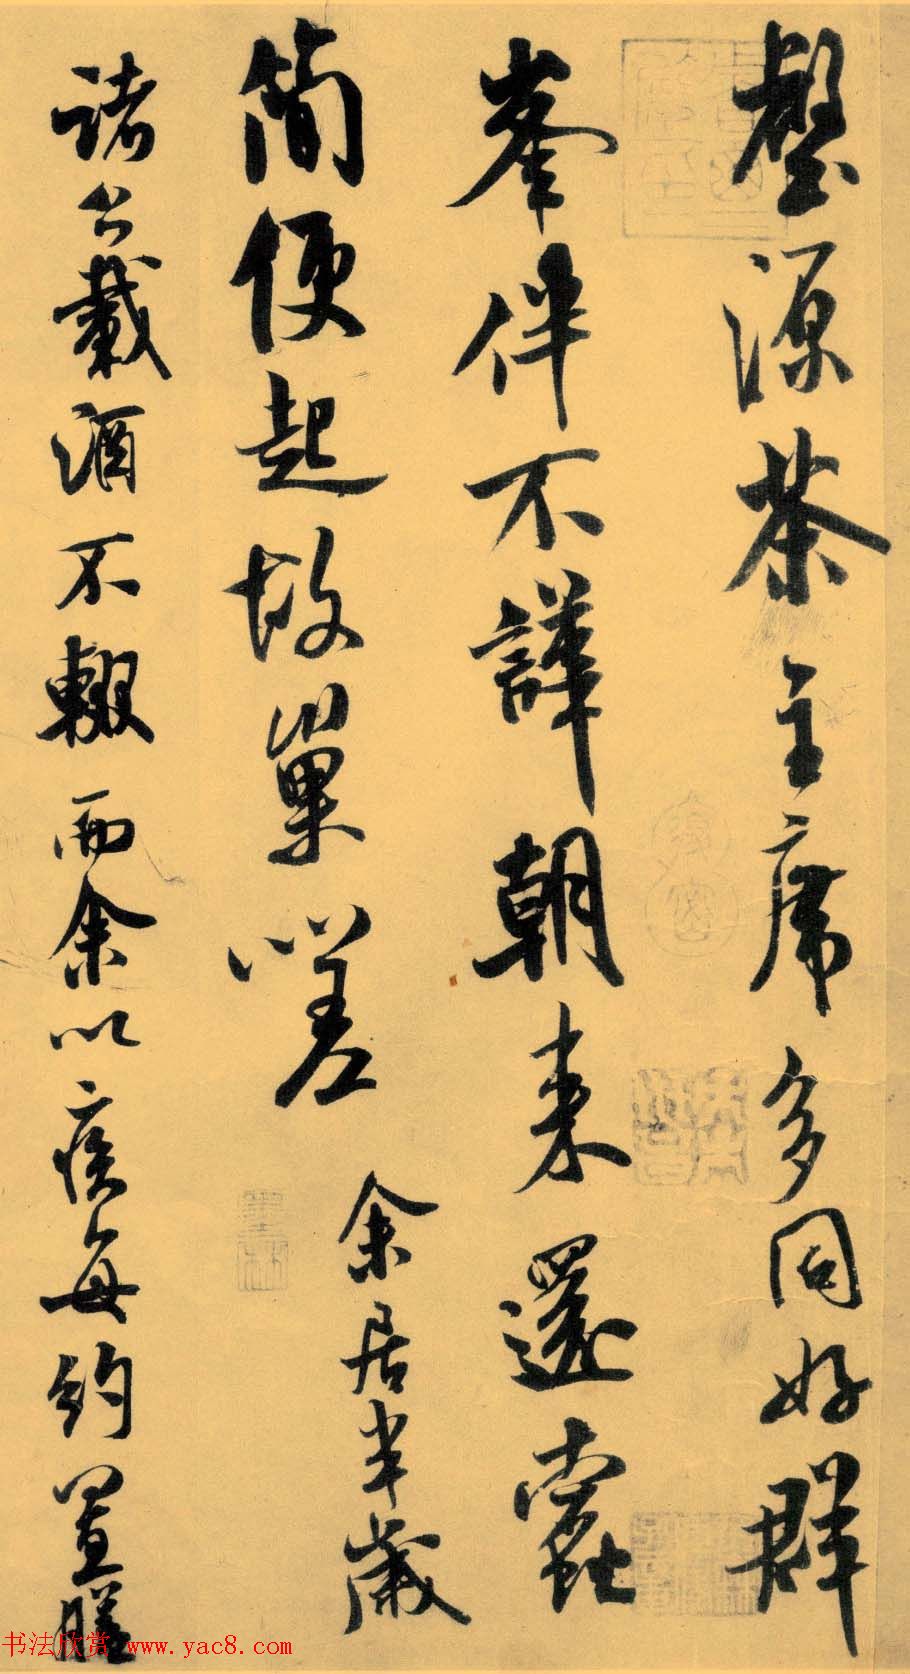 壑源茶主席多同好群
峯伴不譁朝来還蠹
簡便起故巢嗟
余居半歲
諸公載酒不輟而余以疾每約置膳
书法欣赏 www.yac8.com